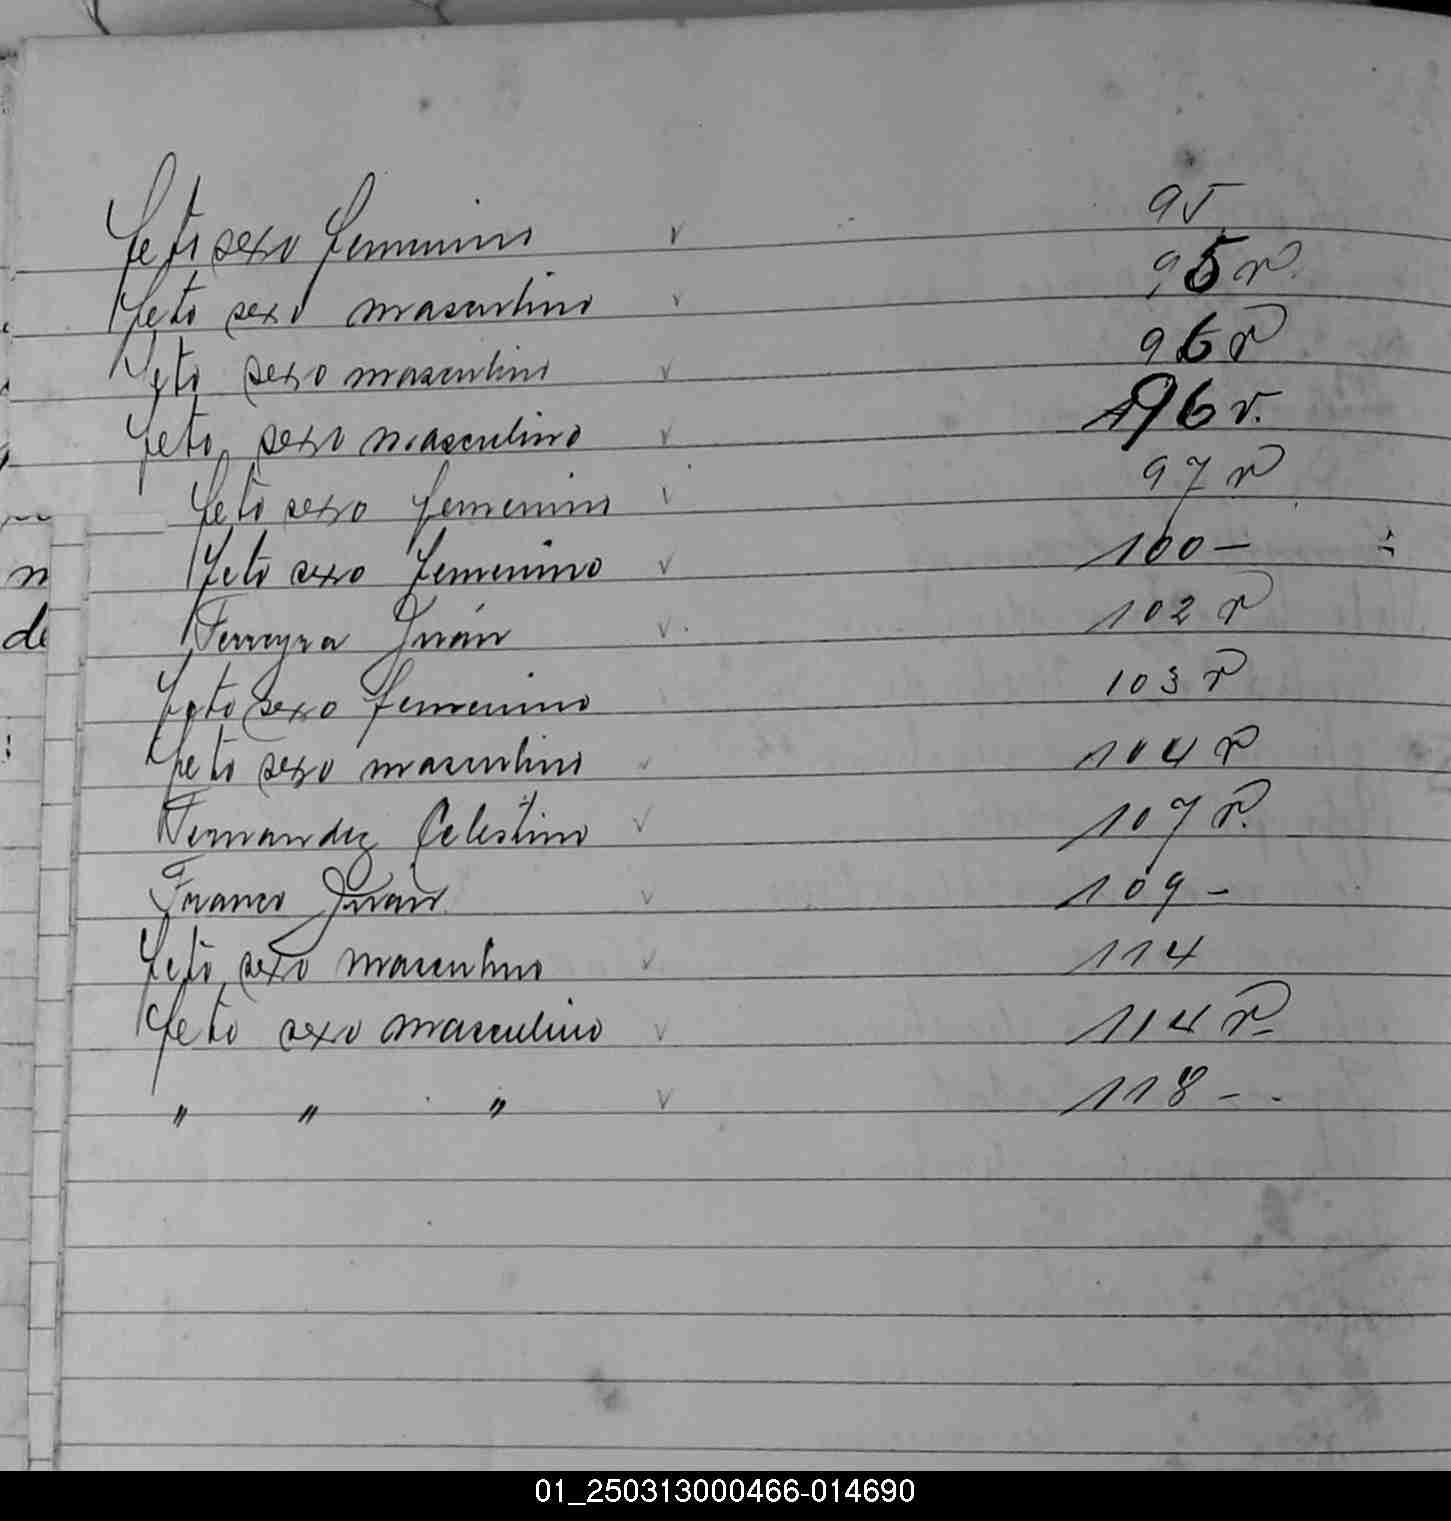 feto sexo femenino v 95
feto sexo masculino v 95 v.
feto sexo masculino v 96 v
feto sexo masculino v 96 v.
feto sexo femenino v 97 v
feto sexo femenino v 100 –
Ferreyra Juan v 102 v
feto sexo femenino 103 v
feto sexo masculino v 104 v
Fernandez Celestino v 107 v.
Franco Juan v 109 –
feto sexo masculino v 114
feto sexo masculino v 114 v
" " " v 118 –
n
de
01_250313000466-014690